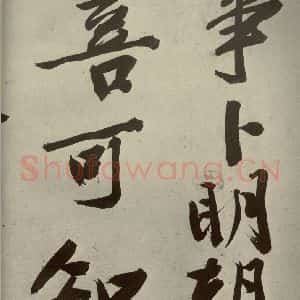 事卜明朝
喜可知
Shufawang.CN